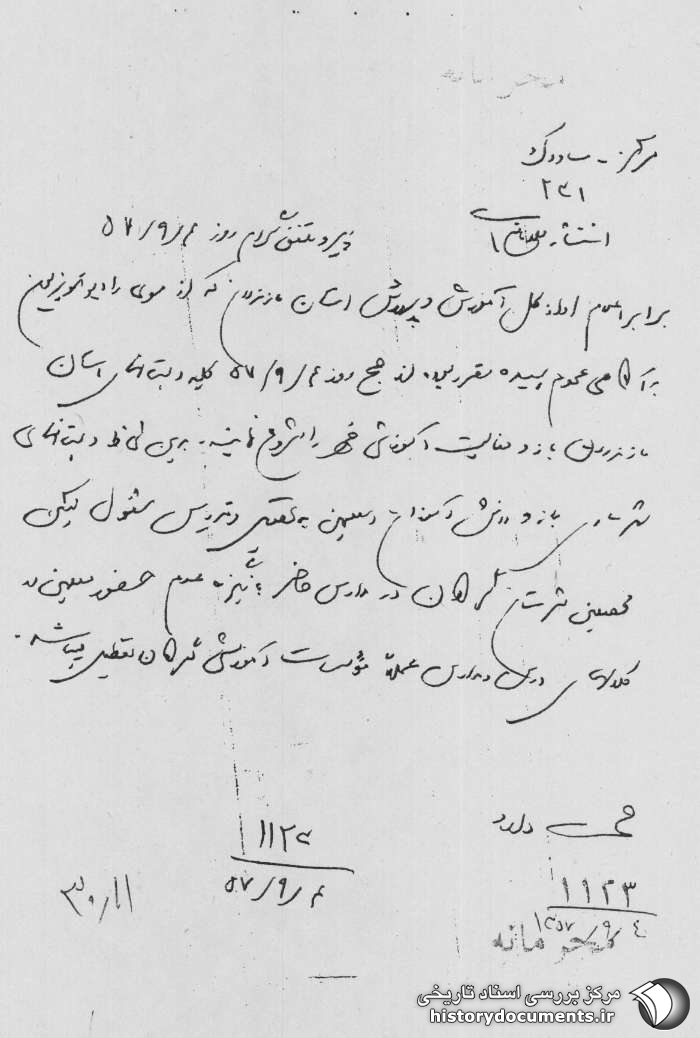 محرمانه
مرکز - ساواک
۲۳۱
انتشار
پیرو تلفنگرام روز ۵۷/۹/۴
برابر اعلام اداره کل آموزش و پرورش استان مازندران که از سوی رادیو تلویزیون
به آگاهی عموم رسیده مقرر بوده از صبح روز ۵۷/۹/۴ کلیه دبستانهای استان
مازندران باز و فعالیت آموزشی خود را شروع نمایند. بدین لحاظ دبستانهای
باز و دانش آموزان و معلمین به تحصیل و تدریس مشغول لیکن
محصلین شهرستان گرگان در مدارس حاضر عدم حضور معلمین
کلاسهای درس و مدارس عملا مؤسسات آموزشی گرگان تعطیل میباشد.
صحت دارد
۱۱۲۳
۵۷/۹/۴
۱۱۲۳
۱۳۵۷/۹/۴
محرمانه
مرکز بررسی اسناد تاریخی
historydocuments.ir